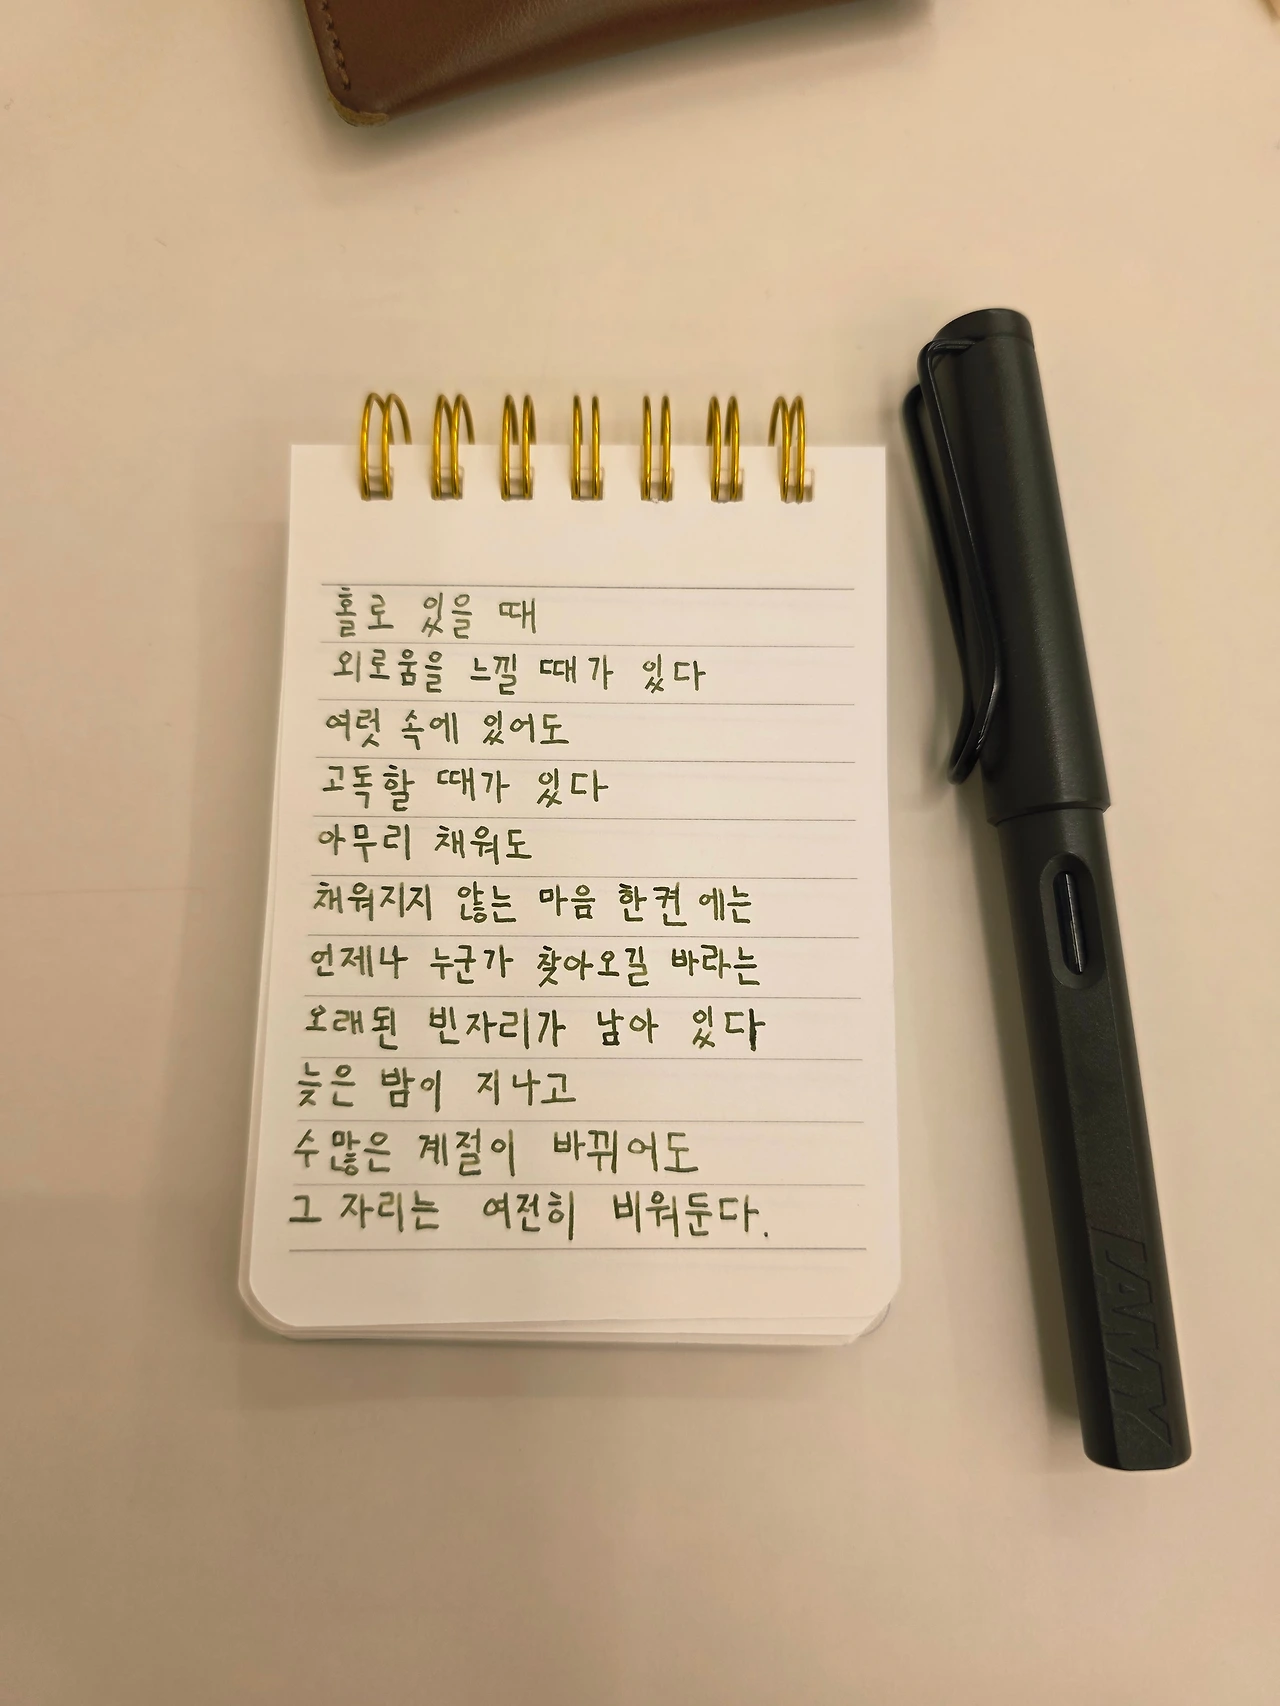 홀로 있을 때
외로움을 느낄 때가 있다
여럿 속에 있어도
고독할 때가 있다
아무리 채워도
채워지지 않는 마음 한켠에는
언제나 누군가 찾아오길 바라는
오래된 빈자리가 남아 있다
늦은 밤이 지나고
수많은 계절이 바뀌어도
그 자리는 여전히 비워둔다.
LAMY